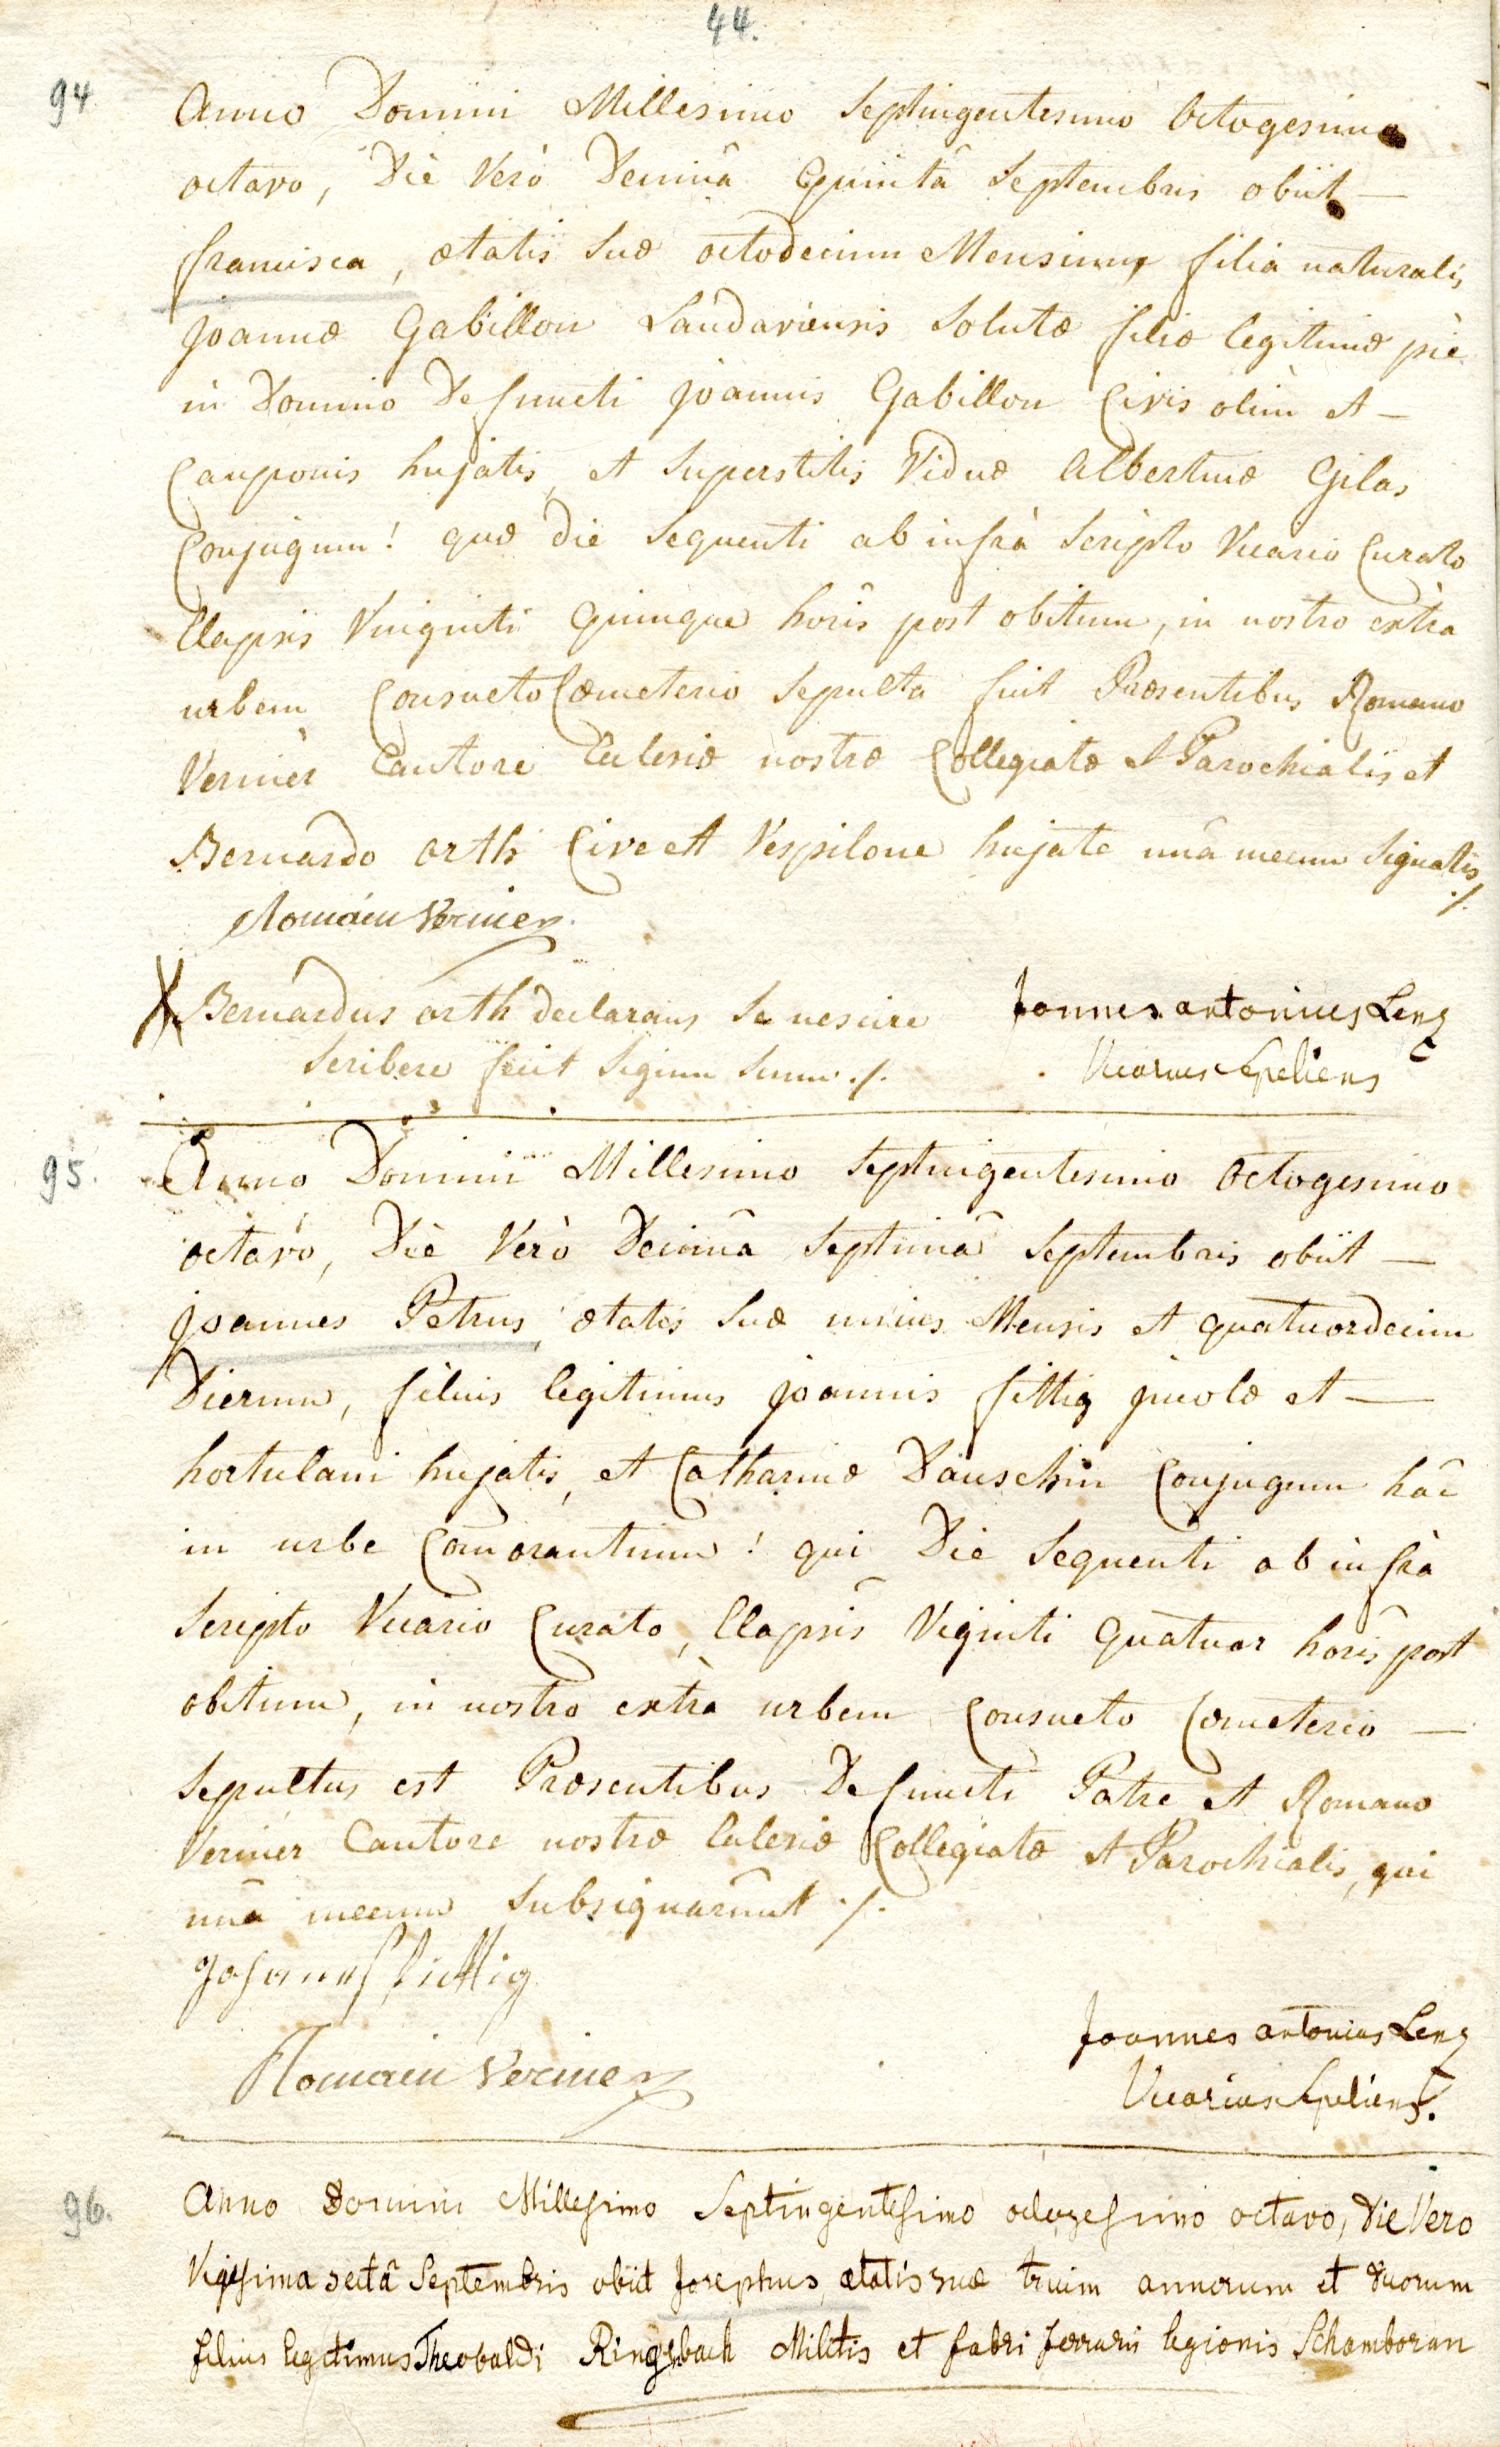 44.
94
Anno Domini Millesimo Septingentesimo Octogesimo
octavo, Diè Verò Decimâ Quintâ Septembris obiit —
francisca, ætatis suæ octodecim Mensium filia naturalis
Joannæ Gabillon Landaviensis solutæ filiæ legitimæ piè
in Domino Defuncti Joannis Gabillon Civis olim et —
Cauponis hujatis, et superstitis Viduæ Albertinæ Gilas
Conjugum! quæ die sequenti ab infrà scripto Vicario Curato
Elapsis Viginti Quinque horis post obitum, in nostro extra
urbem Consueto Cœmeterio sepulta fuit Præsentibus Romano
Vernier Cantore Eclesiæ nostræ Collegiatæ et Parochialis et
Bernardo orth Cive et Vespilone hujate unâ mecum signatis ./.
Romain Vernier
X Bernardus orth declarans se nescire
scribere fecit signum suum ./.
Joannes antonius Lenz
Vicarius Sepeliens
95.
Anno Domini Millesimo Septingentesimo Octogesimo
octavo, Diè Verò Decimâ Septimâ Septembris obiit —
Joannes Petrus, ætatis suæ unius Mensis et quatuordecim
Dierum, filius legitimus Joannis fittig incolæ et —
hortulani hujatis, et Catharinæ Dauschin Conjugum hâc
in urbe Comorantium! qui Die sequenti ab infrà
scripto Vicario Curato, Elapsis Viginti quatuor horis post
obitum, in nostro extrà urbem Consueto Cœmeterio —
sepultus est Præsentibus Defuncti Patre et Romano
Vernier Cantore nostræ Eclesiæ Collegiatæ et Parochialis, qui
unâ mecum subsignarunt ./.
Johannes fittig
Romain Vernier
Joannes antonius Lenz
Vicarius Sepeliens.
96.
Anno Domini Millesimo Septingentesimo octogesimo octavo, die Vero
Vigesima sextâ Septembris obiit Josephus, ætatis suæ trium annorum et duorum
filius legitimus Theobaldi Ringsbach Militis et fabri ferrarii legionis Schamboran